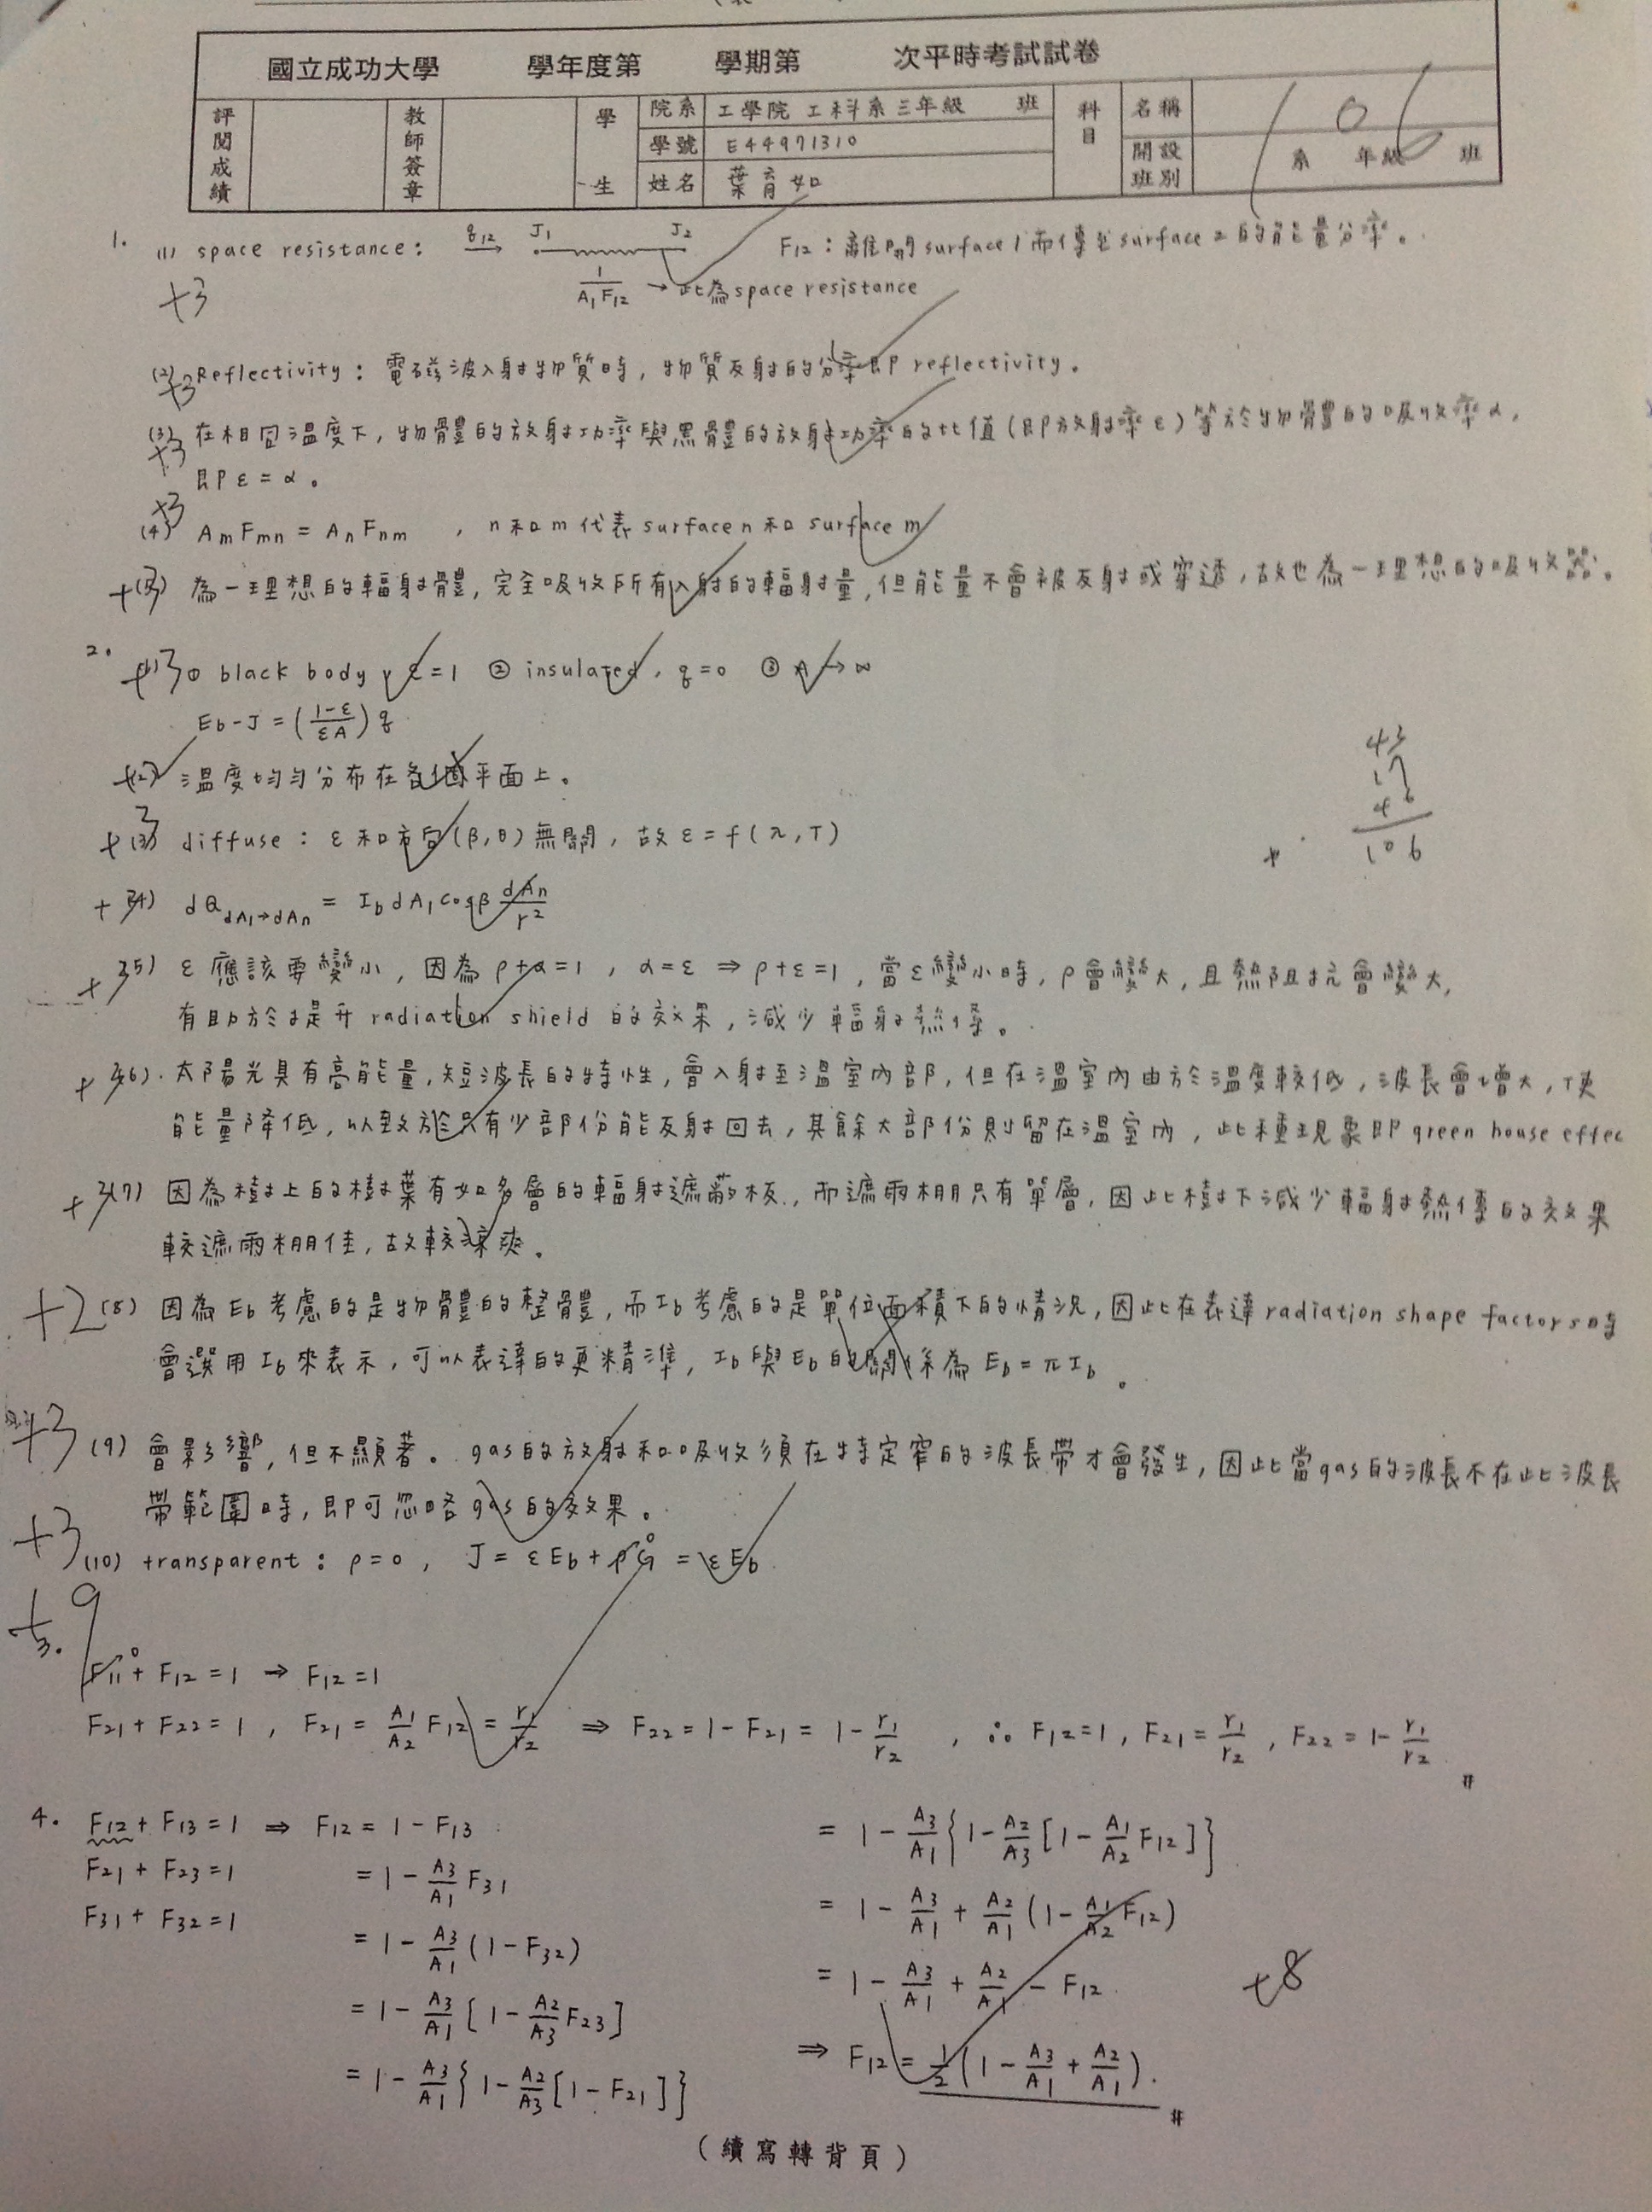 國立成功大學 學年度第 學期第 次平時考試試卷
評閱成績 教師簽章 學生 院系 工學院 工科系三年級 班 科目 名稱 106
學號 E44971310 開設班別 系 年級 班
姓名 葉育如
1. (1) space resistance: q12 → J1 J2 F12:離開surface 1而傳至surface 2的能量分率。
+3 1/(A1F12) → 此為space resistance
(2) Reflectivity:電磁波入射物質時,物質反射的分率即reflectivity。
+3
(3) 在相同溫度下,物體的放射功率與黑體的放射功率的比值(即放射率ε)等於物體的吸收率α,
+3 即ε=α。
+3
(4) AmFmn = AnFnm , n和m代表surface n和surface m
+3 為一理想的輻射體,完全吸收所有入射的輻射量,但能量不會被反射或穿透,故也為一理想的吸收器。
2. (1) +3 ① black body, ε=1 ② insulated, q=0 ③ A→∞
Eb-J = ((1-ε)/(εA)) q
43
17
46
106
(2) 溫度均勻分布在各個平面上。
+3 (3) diffuse: ε和方向(β,θ)無關,故ε=f(λ,T)
+3 (4) dQ dA1→dAn = Ib dA1 cosβ dAn/r²
+3 (5) ε應該要變小,因為ρ+α=1, α=ε ⇒ ρ+ε=1,當ε變小時,ρ會變大,且熱阻抗會變大,
有助於提升radiation shield的效果,減少輻射熱傳。
+3 (6). 太陽光具有高能量,短波長的特性,會入射至溫室內部,但在溫室內由於溫度較低,波長會增大,使
能量降低,以致於只有少部份能反射回去,其餘大部份則留在溫室內,此種現象即green house effec
+3 (7) 因為樹上的樹葉有如多層的輻射遮蔽板,而遮雨棚只有單層,因此樹下減少輻射熱傳的效果
較遮雨棚佳,故較涼爽。
+2 (8) 因為Eb考慮的是物體的整體,而Ib考慮的是單位面積下的情況,因此在表達radiation shape factors時
會選用Ib來表示,可以表達的更精準,Ib與Eb的關係為Eb=πIb。
+3 (9) 會影響,但不顯著。gas的放射和吸收須在特定窄的波長帶才會發生,因此當gas的波長不在此波長
帶範圍時,即可忽略gas的效果。
+3 (10) transparent: ρ=0, J = εEb + ρG⁰ = εEb
+9
3.
F11⁰ + F12 = 1 → F12 = 1
F21 + F22 = 1 , F21 = A1/A2 F12 = r1/r2 ⇒ F22 = 1-F21 = 1 - r1/r2 , ∴ F12=1, F21 = r1/r2, F22 = 1- r1/r2 #
4. F12 + F13 = 1 ⇒ F12 = 1 - F13
F21 + F23 = 1 = 1 - A3/A1 F31
F31 + F32 = 1
= 1 - A3/A1 (1-F32)
= 1 - A3/A1 [1 - A2/A3 F23]
= 1 - A3/A1 {1 - A2/A3 [1 - F21]}
= 1 - A3/A1 {1 - A2/A3 [1 - A1/A2 F12]}
= 1 - A3/A1 + A2/A1 (1 - A1/A2 F12)
= 1 - A3/A1 + A2/A1 - F12 +8
⇒ F12 = 1/2 (1 - A3/A1 + A2/A1). #
(續寫轉背頁)